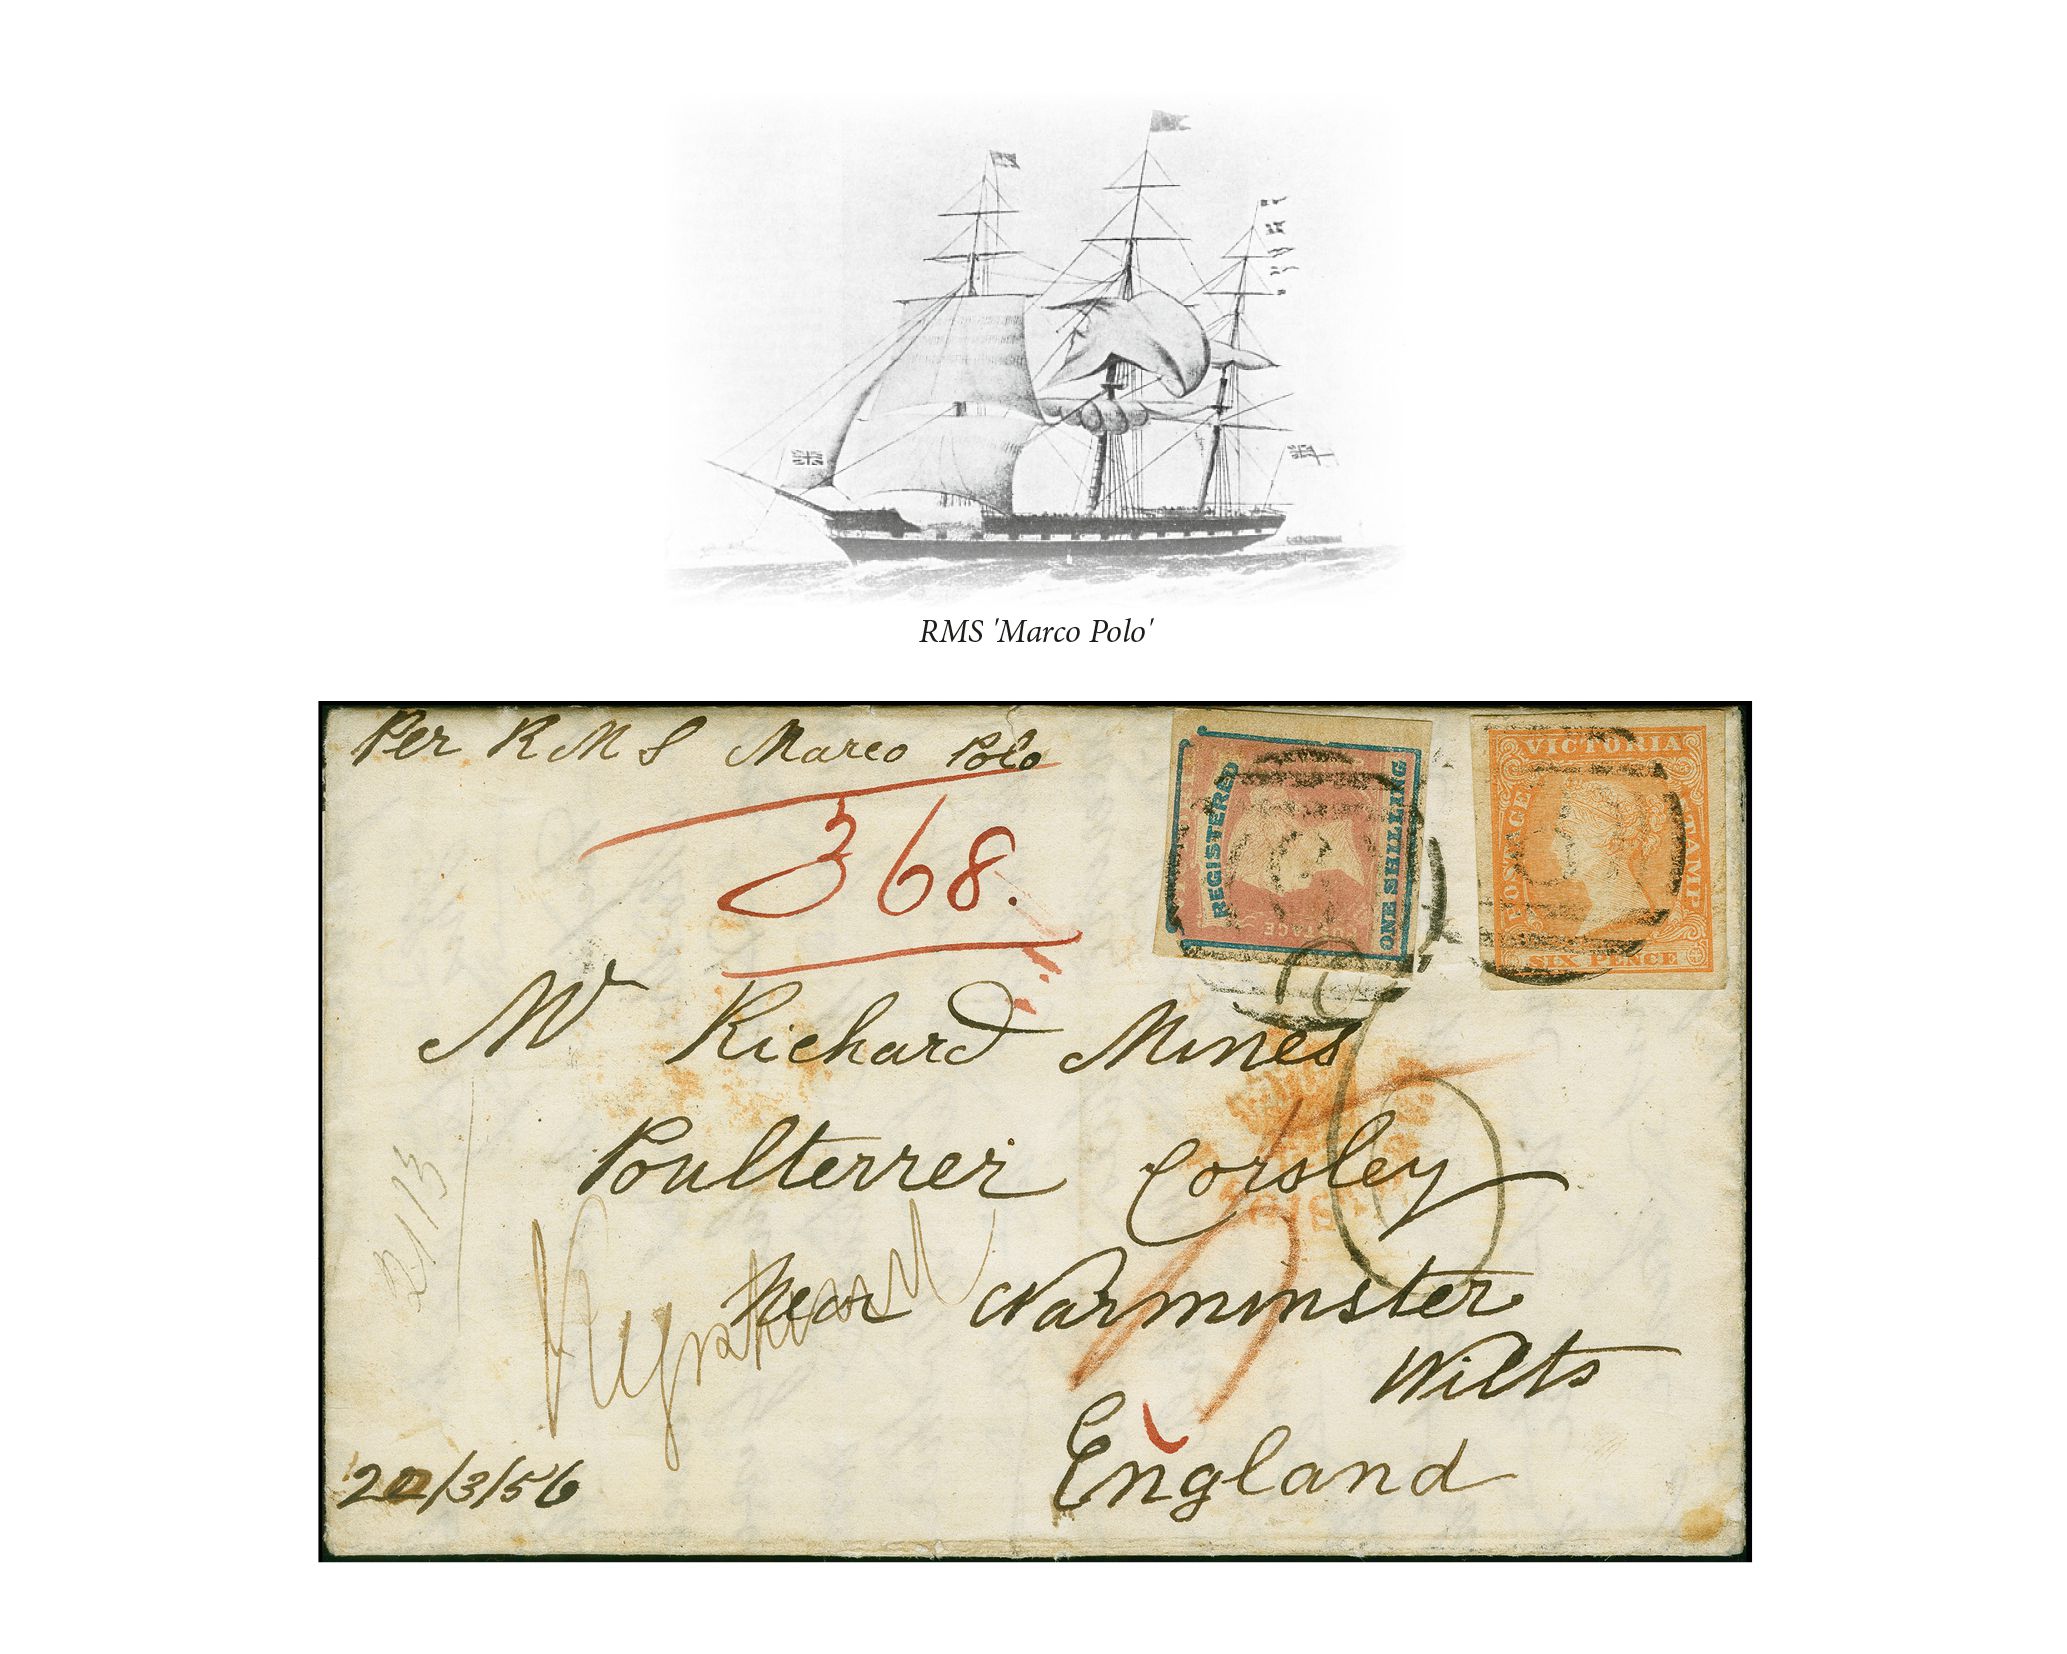 RMS 'Marco Polo'
Per RMS Marco Polo
368.
REGISTERED
ONE SHILLING
POSTAGE
VICTORIA
POSTAGE
STAMP
SIX PENCE
Mr Richard Mines
Poulterrer Corsley
Near Warminster
Wilts
England
22/3/56